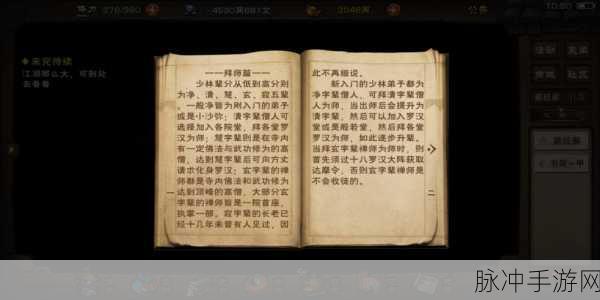 体力 376/380
4530两681文
2046两
公告
10:50
未完待续
江湖那么大，可到处
去看看
——拜师篇——
少林辈分从低到高分别
为净、清、慧、玄、寂五辈
。一般净皆为刚入门的弟子
或是小沙弥；清字辈僧人可
选择加入各院堂，拜各堂罗
汉为师；慧字辈则是在寺内
有一定佛法与武功修为的高
僧，达到慧字辈后可向方丈
请求化身罗汉；玄字辈的禅
师都是寺内佛法和武功修为
达到顶峰的高僧，大部分玄
字辈的禅师皆是一院首座，
执掌一部。寂字辈的长老已
经十几年未曾有人见过，因
一
此不再细说。
新入门的少林弟子都为
净字辈僧人，可拜清字辈僧
人为师，当出师后会提升为
清字辈，然后可以加入罗汉
堂或是般若堂，然后拜各堂
罗汉为师，如此逐步升辈。
当拜玄字辈禅师为师时，则
首先须过十八罗汉大阵获取
达摩令，否则玄字辈禅师是
不会收徒的。
二
脉冲手游网